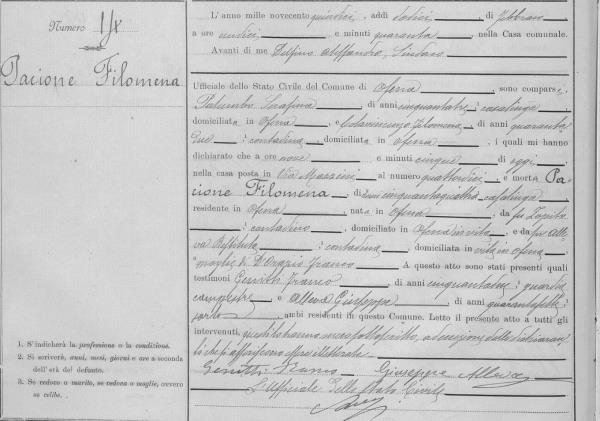 Numero
Pacione Filomena
1. S'indicherà la professione o la condizione.
2. Si scriverà, anni, mesi, giorni e ore a seconda
dell'età del defunto.
3. Se vedovo o marito, se vedova o moglie, ovvero
se celibe.
L'anno mille novecento quindici, addì dodici, di febbraio
a ore undici e minuti quaranta, nella Casa comunale.
Avanti di me Delfino Alessandro, Sindaco
Ufficiale dello Stato Civile del Comune di Ofena, sono comparse
Palumbo Serafina, di anni cinquantatre, casalinga,
domiciliata in Ofena, e Colavincenzo Filomena, di anni quaranta
due, contadina, domiciliata in Ofena, i quali mi hanno
dichiarato che a ore nove e minuti cinque di oggi,
nella casa posta in Via Mazzini al numero quattordici, è morta Pa-
cione Filomena, di anni cinquantaquattro casalinga,
residente in Ofena, nata in Ofena, da fu
contadino, domiciliato in Ofena in vita, e da fu Alle
va Restituta, contadina, domiciliata in vita in Ofena,
moglie di D'Orazio Franco A questo atto sono stati presenti quali
testimoni Genitti Franco, di anni cinquantatre, guardia
campestre e Alleva Giuseppe, di anni quarantasette
sarto, ambi residenti in questo Comune. Letto il presente atto a tutti gli
intervenuti, questi lo hanno meco sottoscritto, ad eccezione delle dichiaran
ti che
Genitti Franco Giuseppe Alleva
L'Ufficiale dello Stato Civile